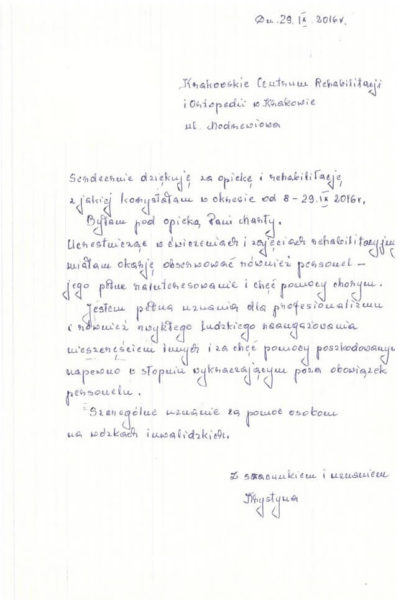 Dn. 29.IX 2016r.
Krakowskie Centrum Rehabilitacji
i Ortopedii w Krakowie
ul. Modrzewiowa
Serdecznie dziękuję za opiekę i rehabilitację
z jakiej korzystałam w okresie od 8-29.IX 2016r.
Byłam pod opieką Pani Marty.
Uczestnicząc w ćwiczeniach i zajęciach rehabilitacyjnych
miałam okazję obserwować również personel –
jego pełne zainteresowanie i chęć pomocy chorym.
Jestem pełna uznania dla profesjonalizmu
i również zwykłego ludzkiego zaangażowania
nieszczęściem innych i za chęć pomocy poszkodowanym
napewno w stopniu wykraczającym poza obowiązek
personelu.
Szczególne uznanie za pomoc osobom
na wózkach inwalidzkich.
Z szacunkiem i uznaniem
Krystyna